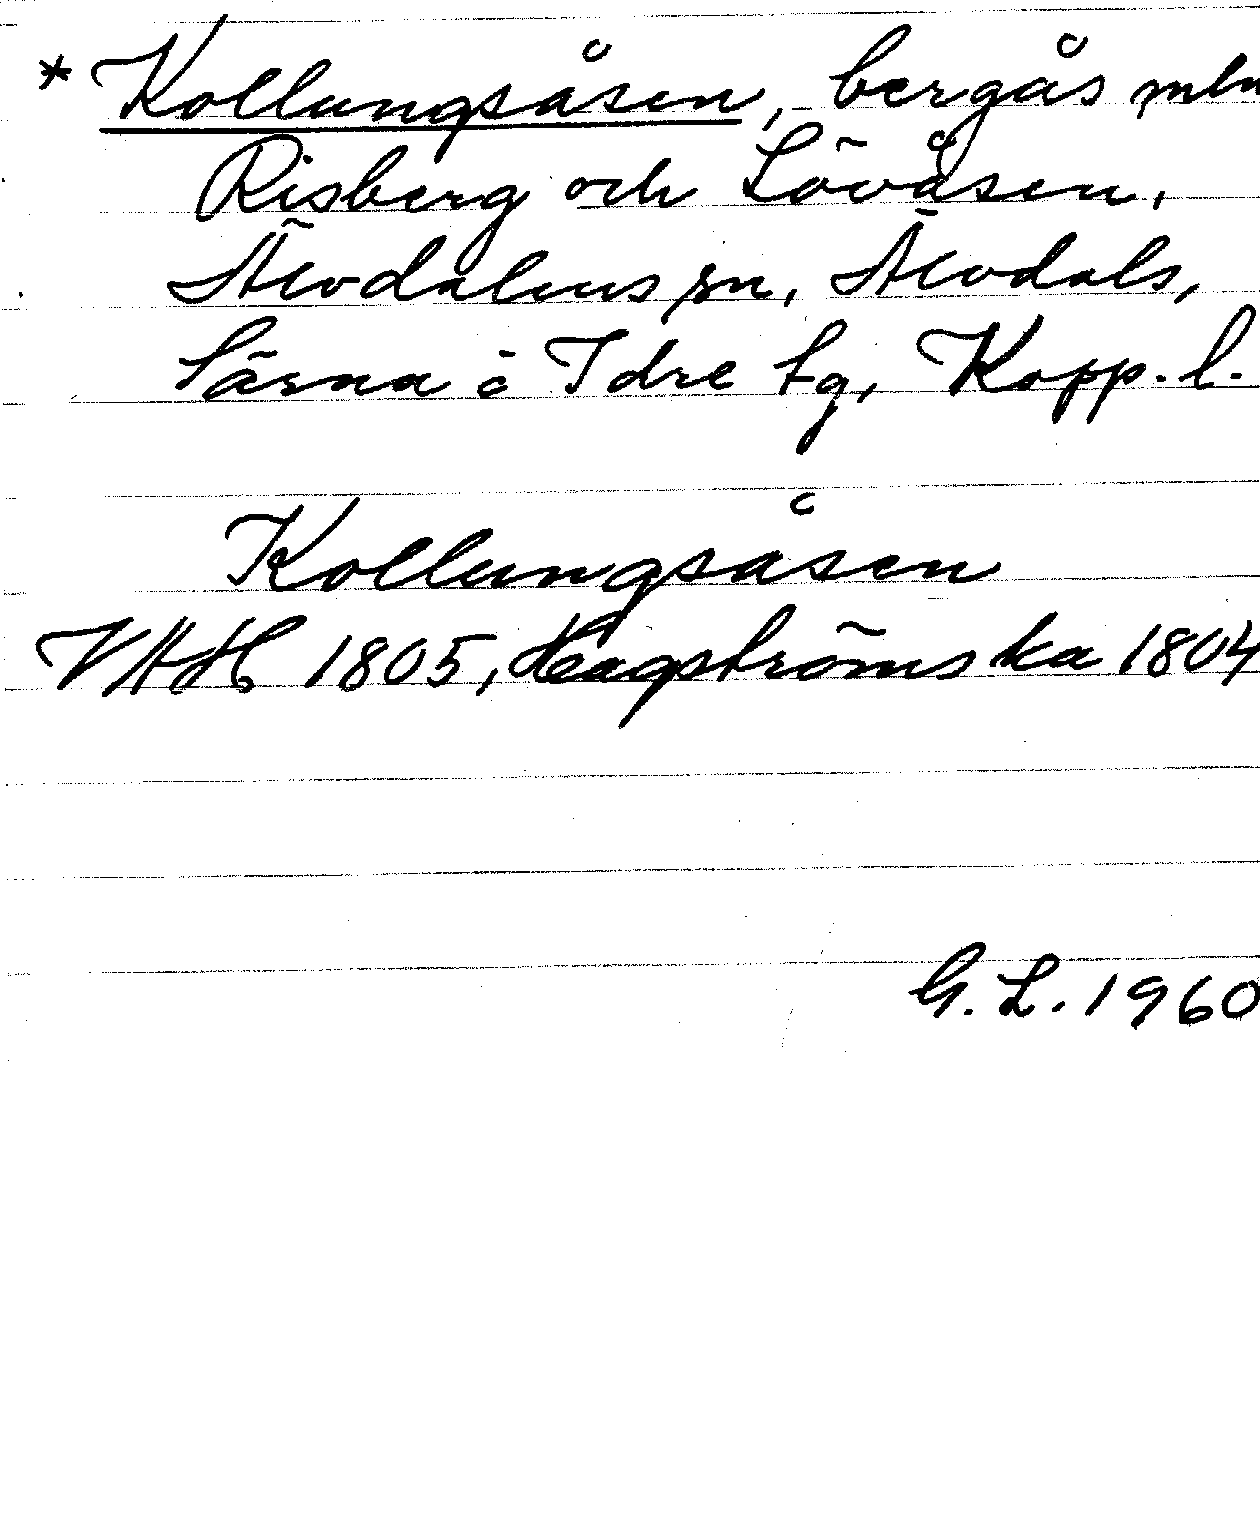 * Kollungsåsen, bergås mln
Risberg och Lövåsen,
Älvdalens sn, Älvdals,
Särna o Idre tg, Kopp. l.
Kollungsåsen
VAH 1805, Hagströms ka 1804
G. L. 1960